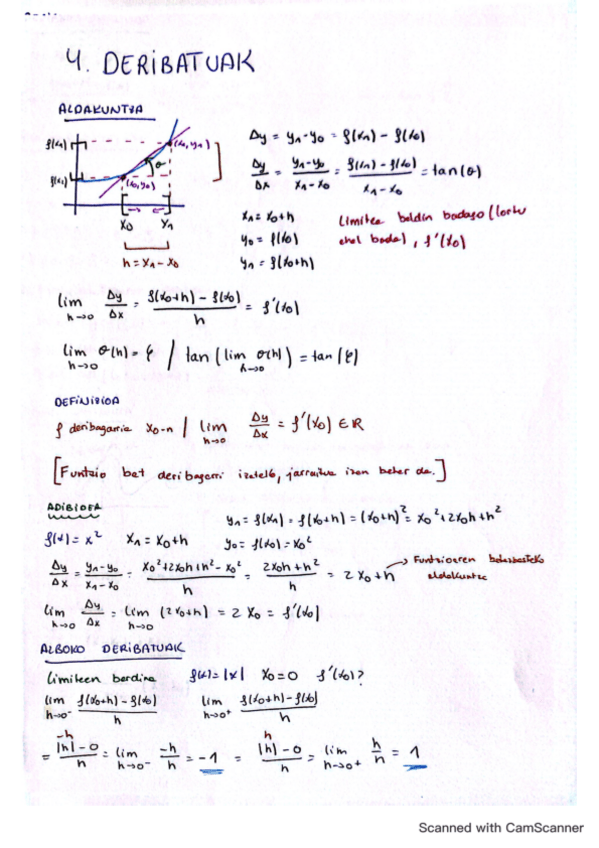 4. DERIBATUAK
ALDAKUNTZA
f(x₁)
(x₁, y₁)
θ
f(x₀)
(x₀, y₀)
x₀ x₁
h = x₁ - x₀
Δy = y₁ - y₀ = f(x₁) - f(x₀)
Δy/Δx = (y₁ - y₀)/(x₁ - x₀) = (f(x₁) - f(x₀))/(x₁ - x₀) = tan(θ)
x₁ = x₀ + h
y₀ = f(x₀)
y₁ = f(x₀+h)
Limitea baldin badago (lortu
ahal bada), f'(x₀)
lim h→0 Δy/Δx = (f(x₀+h) - f(x₀))/h = f'(x₀)
lim h→0 θ(h) = φ / tan(lim h→0 θ(h)) = tan(φ)
DEFINIZIOA
f deribagarria x₀-n / lim h→0 Δy/Δx = f'(x₀) ∈ ℝ
[Funtzio bat deribagarri izateko, jarraitua izan behar da.]
ADIBIDEA
y₁ = f(x₁) = f(x₀+h) = (x₀+h)² = x₀² + 2x₀h + h²
f(x) = x² x₁ = x₀ + h y₀ = f(x₀) = x₀²
Δy/Δx = (y₁ - y₀)/(x₁ - x₀) = (x₀² + 2x₀h + h² - x₀²)/h = (2x₀h + h²)/h = 2x₀ + h → Funtzioaren batezbesteko
aldakuntza
lim h→0 Δy/Δx = lim h→0 (2x₀ + h) = 2x₀ = f'(x₀)
ALBOKO DERIBATUAK
Limiteen berdina f(x) = |x| x₀ = 0 f'(x₀)?
lim h→0⁻ (f(x₀+h) - f(x₀))/h lim h→0⁺ (f(x₀+h) - f(x₀))/h
-h h
= (|h| - 0)/h = lim h→0⁻ -h/h = -1 = (|h| - 0)/h = lim h→0⁺ h/h = 1
Scanned with CamScanner